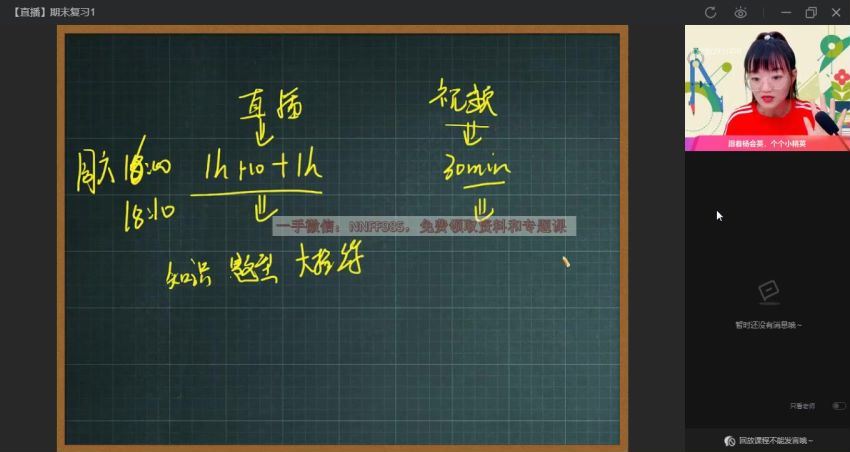 【直播】期末复习1
直播 视频
周六 18:00 1h +10 +1h 30min
18:10
一手微信：NNFF985，免费领取资料和专题课
知识 题型
跟着杨会英，个个小精英
暂时还没有消息哦~
只看老师
回放课程不能发言哦~